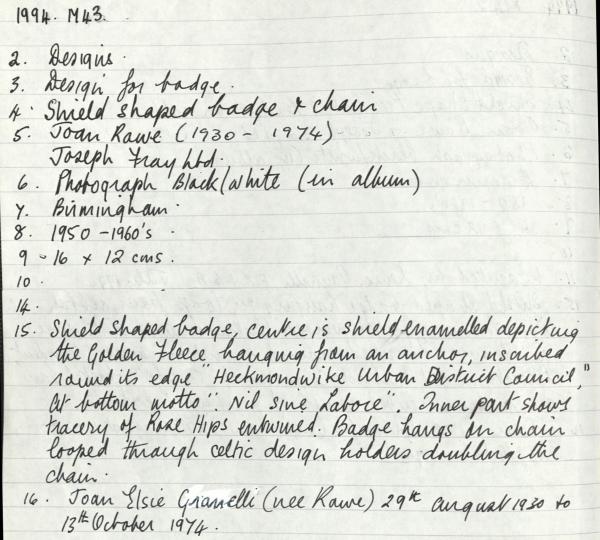 1994. M43.
2. Designs.
3. Design for badge.
4. Shield shaped badge & chain
5. Joan Rawe (1930 - 1974)
Joseph Fray Ltd.
6. Photograph Black/White (in album)
7. Birmingham.
8. 1950 - 1960's.
9 - 16 x 12 cms.
10.
14.
15. Shield shaped badge, centre is shield enamelled depicting
the Golden Fleece hanging from an anchor, inscribed
round its edge "Heckmondwike Urban District Council,"
at bottom motto ". Nil sine Labore". Inner part shows
tracery of Rose Hips entwined. Badge hangs on chain
looped through celtic design holders doubling the
chain.
16. Joan Elsie Granelli (nee Rawe) 29th august 1930 to
13th October 1974.